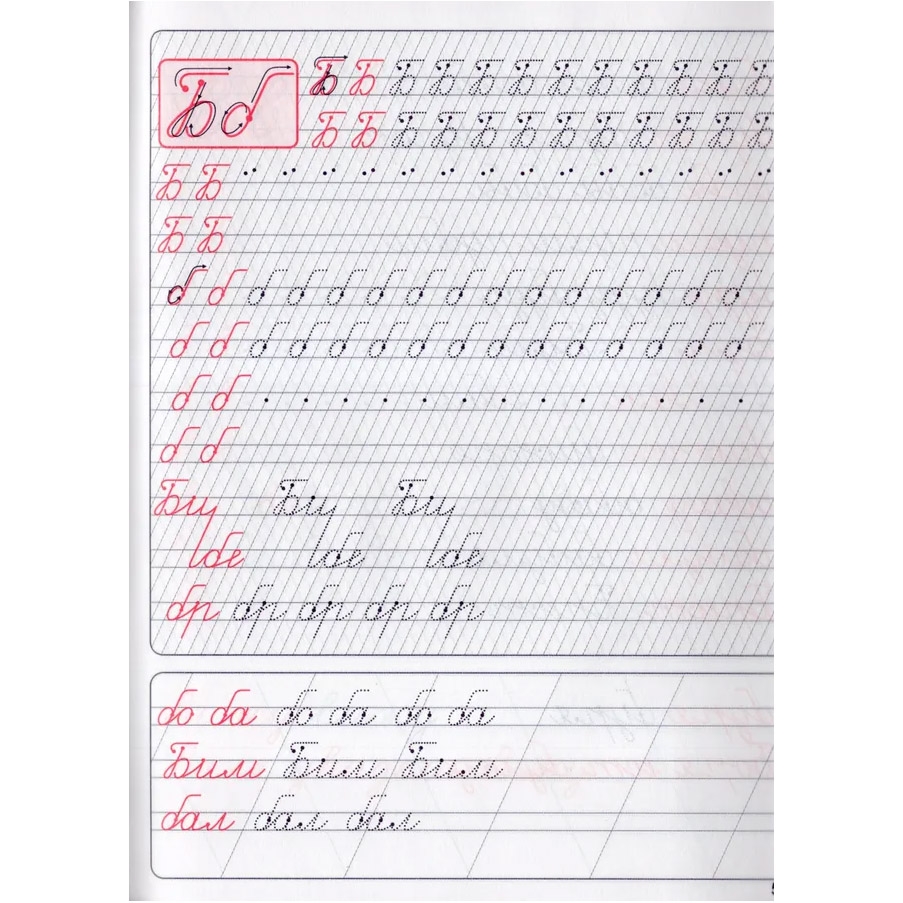 Бб
Б Б Б Б Б Б Б Б Б Б Б Б
Б Б Б Б Б Б Б Б Б Б Б Б
Б Б
Б Б
б б б б б б б б б б б б б б б
б б б б б б б б б б б б б б б
б б
б б
Бу Бу Бу
бе бе бе
бр бр бр бр бр
бо ба бо ба бо ба
Бим Бим Бим
бал бал бал